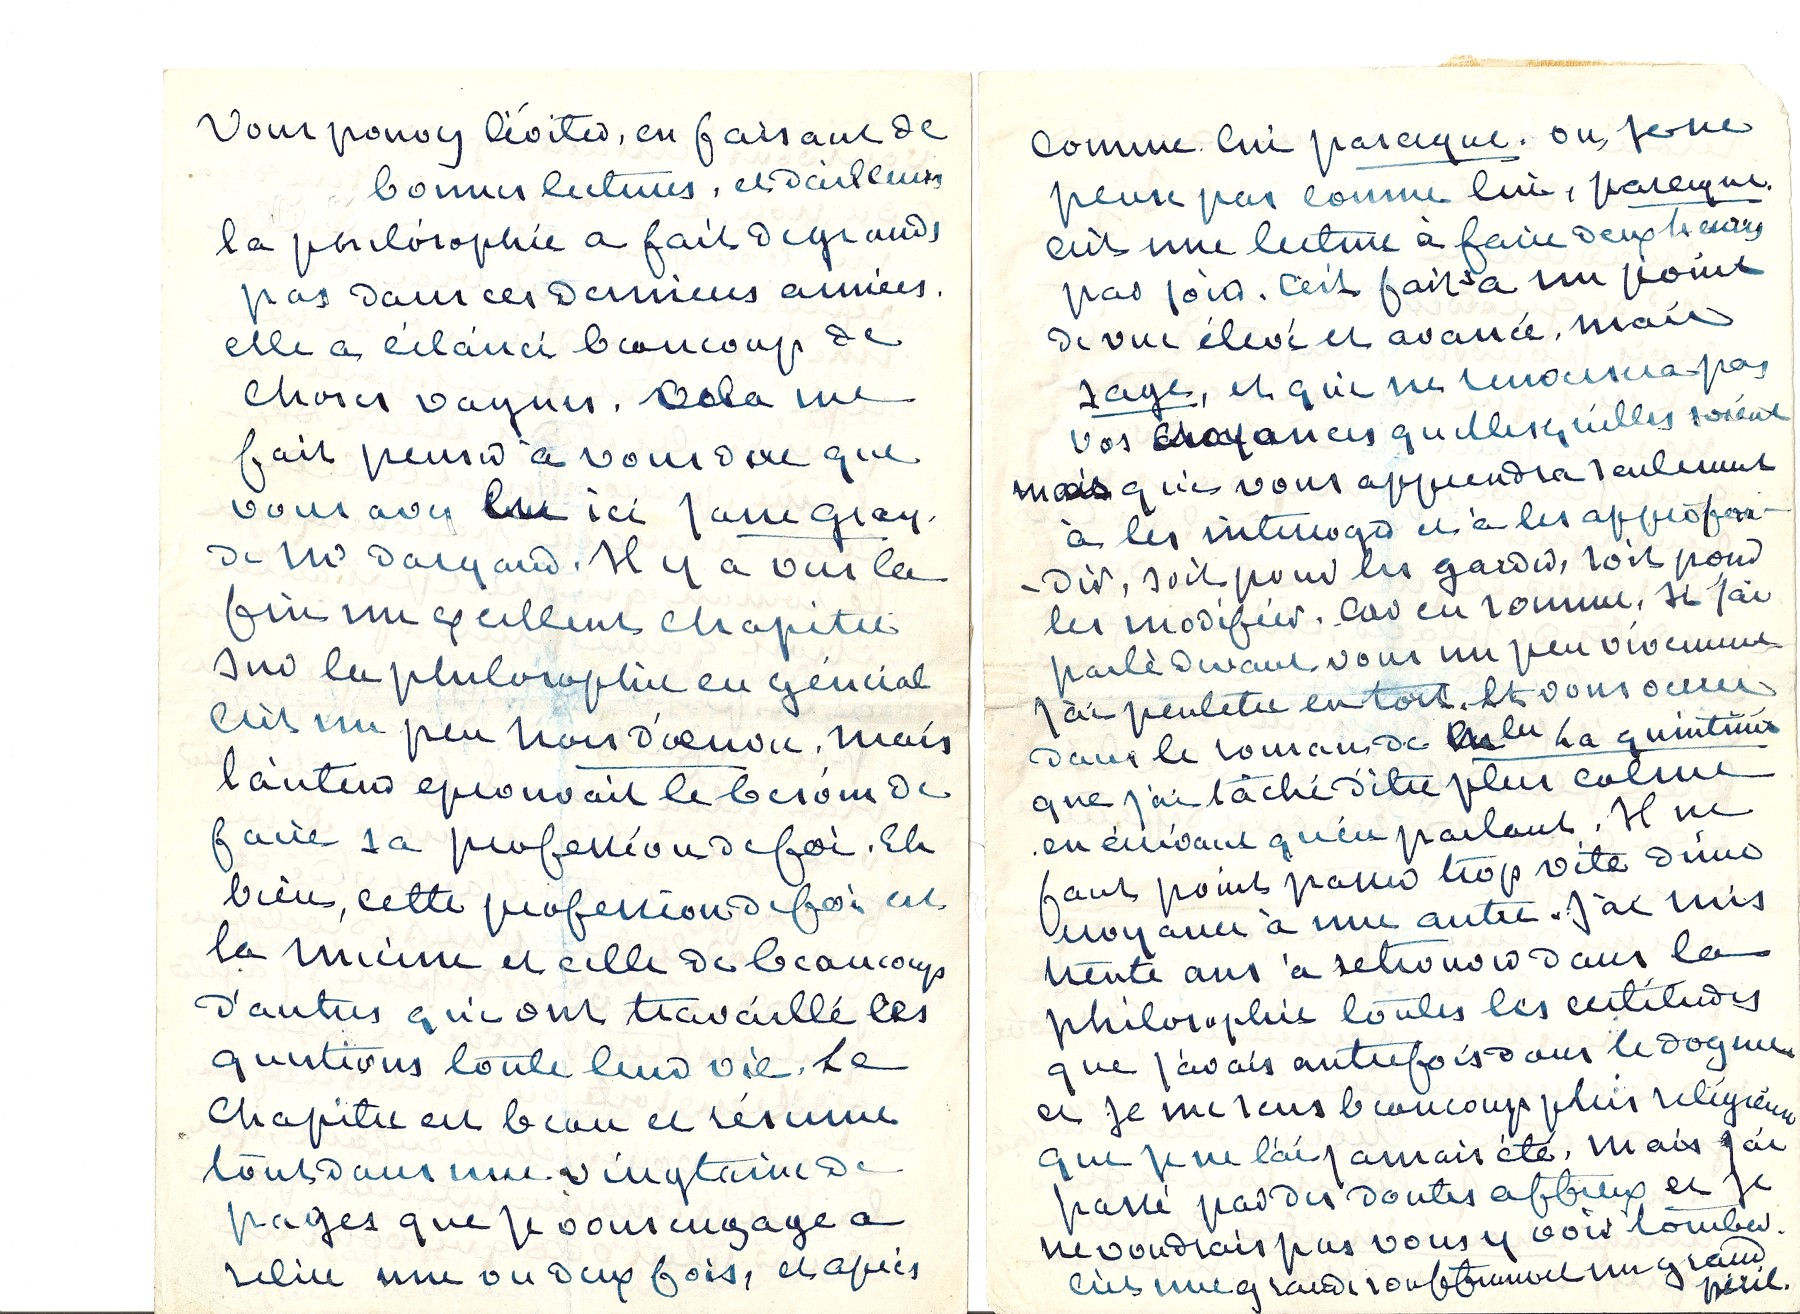 Vous pouvez l'éviter, en faisant de
bonnes lectures, et d'ailleurs
la philosophie a fait de grands
pas dans ces dernieres années.
elle a éclairci beaucoup de
choses vagues. Cela me
fait penser à vous dire que
vous avez lu ici Jane Gray.
de Mr Dargaud. Il y a vers la
fin un excellent chapitre
sur la philosophie en général
C'est un peu hors d'œuvre, mais
l'auteur eprouvait le besoin de
faire sa profession de foi. Eh
bien, cette profession de foi est
la mienne et celle de beaucoup
d'autres qui ont travaillé les
questions toute leur vie. Le
chapitre est beau et résume
tout dans une vingtaine de
pages que je vous engage a
relire une ou deux fois, et après
comme lui parceque. ou, je ne
pense pas comme lui, parceque.
C'est une lecture à faire deux heures
par jour. C'est fait à un point
de vue élevé et avancé, mais
sage, et qui ne renversera pas
vos croyances quelles qu'elles soient
mais qui vous apprendra seulement
à les interroger et à les approfon-
-dir, soit pour les garder, soit pour
les modifier. Car en somme, si j'ai
parlé devant vous un peu vivement
j'ai peutetre eu tort. Et vous verrez
dans le roman de lu La quintinie
que j'ai tâché d'être plus calme
en écrivant qu'en parlant. Il ne
faut point passer trop vite d'une
croyance à une autre. J'ai mis
trente ans à retrouver dans la
philosophie toutes les certitudes
que j'avais autrefois dans le dogme
et je me sens beaucoup plus religieuse
que je ne l'ai jamais été. Mais j'ai
passé par des doutes affreux et je
ne voudrais pas vous y voir tomber.
C'est une grande souffrance et un grand
péril.